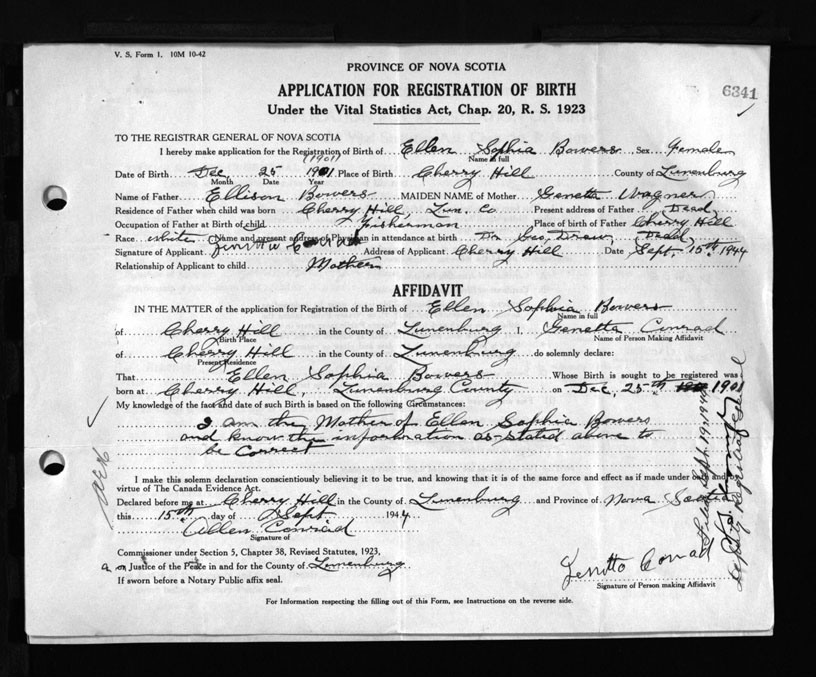 V. S. Form 1. 10M 10-42
PROVINCE OF NOVA SCOTIA
APPLICATION FOR REGISTRATION OF BIRTH
6341
Under the Vital Statistics Act, Chap. 20, R. S. 1923
TO THE REGISTRAR GENERAL OF NOVA SCOTIA
I hereby make application for the Registration of Birth of Ellen Sophia Bowers Sex Female
Name in full
(1901)
Date of Birth Dec. 25 1901 Place of Birth Cherry Hill County of Lunenburg
Month Date Year
Name of Father Ellison Bowers MAIDEN NAME of Mother Genetta Wagner
Residence of Father when child was born Cherry Hill, Lun. Co Present address of Father Dead
Occupation of Father at Birth of child Fisherman Place of birth of Father Cherry Hill
Race white Name and present address of Physician in attendance at birth Dr Geo, Drew, Dead,
Signature of Applicant Address of Applicant Cherry Hill Date Sept. 15th 1944
Relationship of Applicant to child Mother
AFFIDAVIT
IN THE MATTER of the application for Registration of the Birth of Ellen Sophia Bowers
Name in full
of Cherry Hill in the County of Lunenburg I, Genetta Conrad
Birth Place Name of Person Making Affidavit
of Cherry Hill in the County of Lunenburg do solemnly declare:
Present Residence
That Ellen Sophia Bowers Whose Birth is sought to be registered was
born at Cherry Hill, Lunenburg County on Dec, 25th 1901
My knowledge of the fact and date of such Birth is based on the following Circumstances:
I am the Mother of Ellen Sophia Bowers
and know the information as stated above to
be Correct
I make this solemn declaration conscientiously believing it to be true, and knowing that it is of the same force and effect as if made under oath and
virtue of The Canada Evidence Act.
Declared before me at Cherry Hill in the County of Lunenburg and Province of Nova Scotia
this 15th day of Sept 1944
Allen Conrad
Signature of
Commissioner under Section 5, Chapter 38, Revised Statutes, 1923,
a or Justice of the Peace in and for the County of Lunenburg
If sworn before a Notary Public affix seal.
Conrad
Signature of Person making Affidavit
For Information respecting the filling out of this Form, see Instructions on the reverse side.